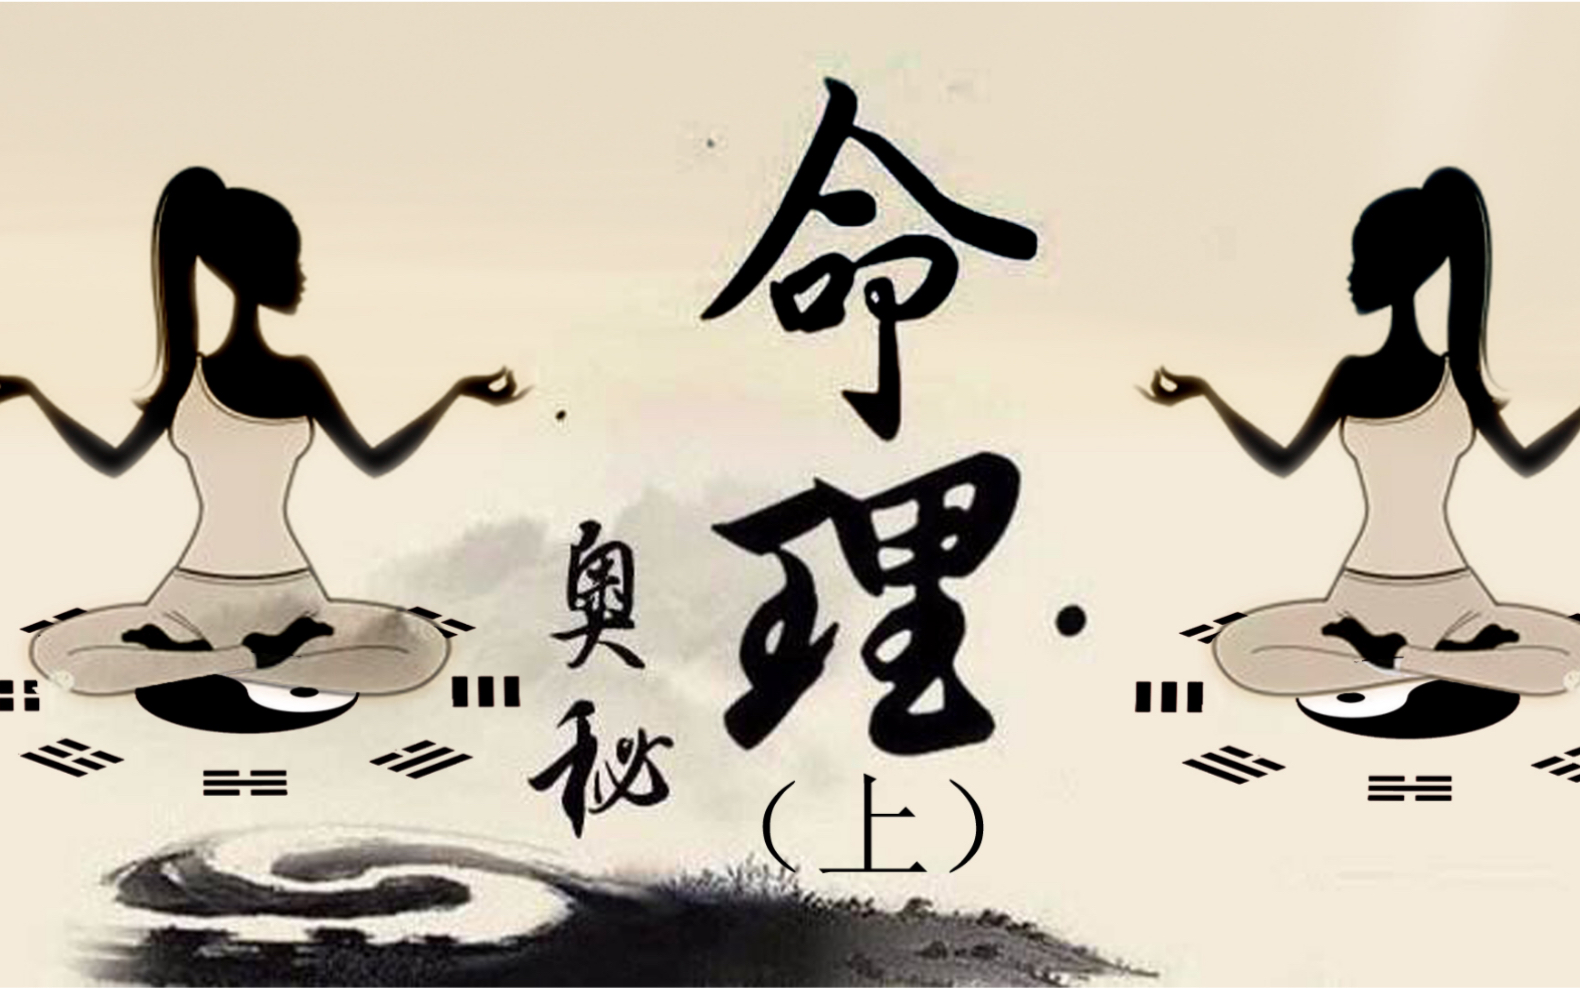 命理
奥秘
（上）